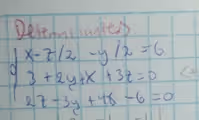 x-z/2 -y/2=6
3+2y+x+3z=0
2z-3y+4x-6=0